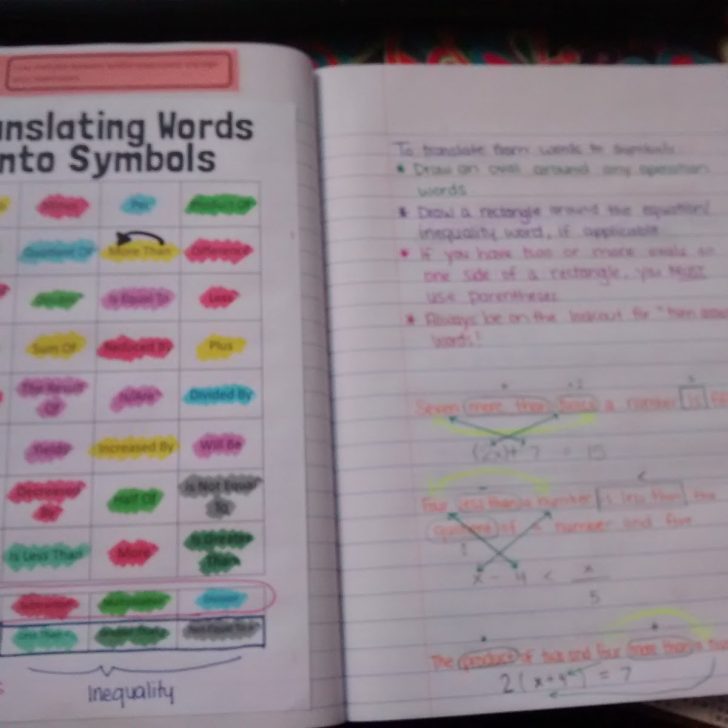 anslating Words
nto Symbols
Per
Product Of
Quotient Of
More Than
Difference
Is Equal To
Less
Sum Of
Reduced By
Plus
The Result
Of
Divided By
Yields
Increased By
Will Be
Decreased
By
Half Of
Is Not Equal
To
Is Less Than
More
Is Greater
Than
Inequality
To translate from words to symbols:
• Draw an oval around any operation
words.
Draw a rectangle around the equation/
inequality word, if applicable
• If you have two or more ovals on
one side of a rectangle, you MUST
use parentheses
Always be on the lookout for "turn
words!
Seven more than twice a number is
(2x)+7 = 15
Four less than a number is less than the
quotient of a number and five
x - 4 < x
5
The product of two and four more than a
2(x+4) = 7